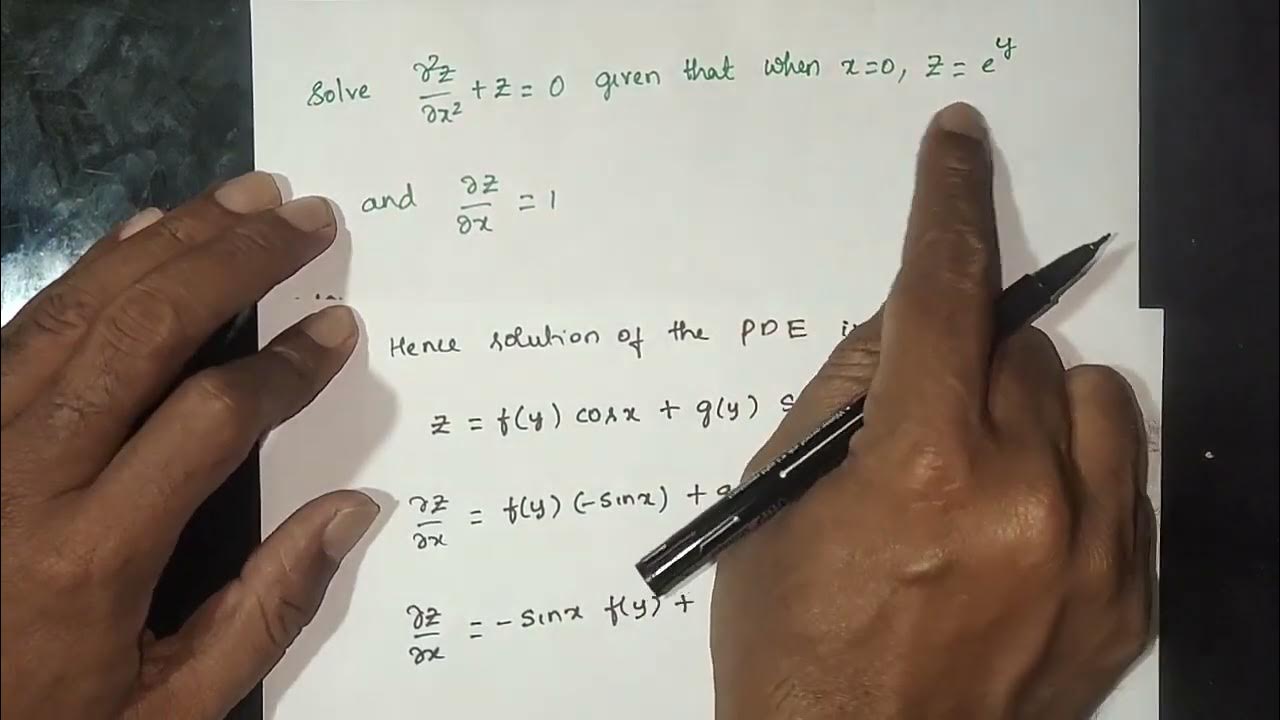 Solve ∂²z/∂x² + z = 0 given that when x=0, z = e^y
and ∂z/∂x = 1
Hence solution of the PDE
z = f(y) cosx + g(y)
∂z/∂x = f(y) (-sinx) +
∂z/∂x = -sinx f(y) +